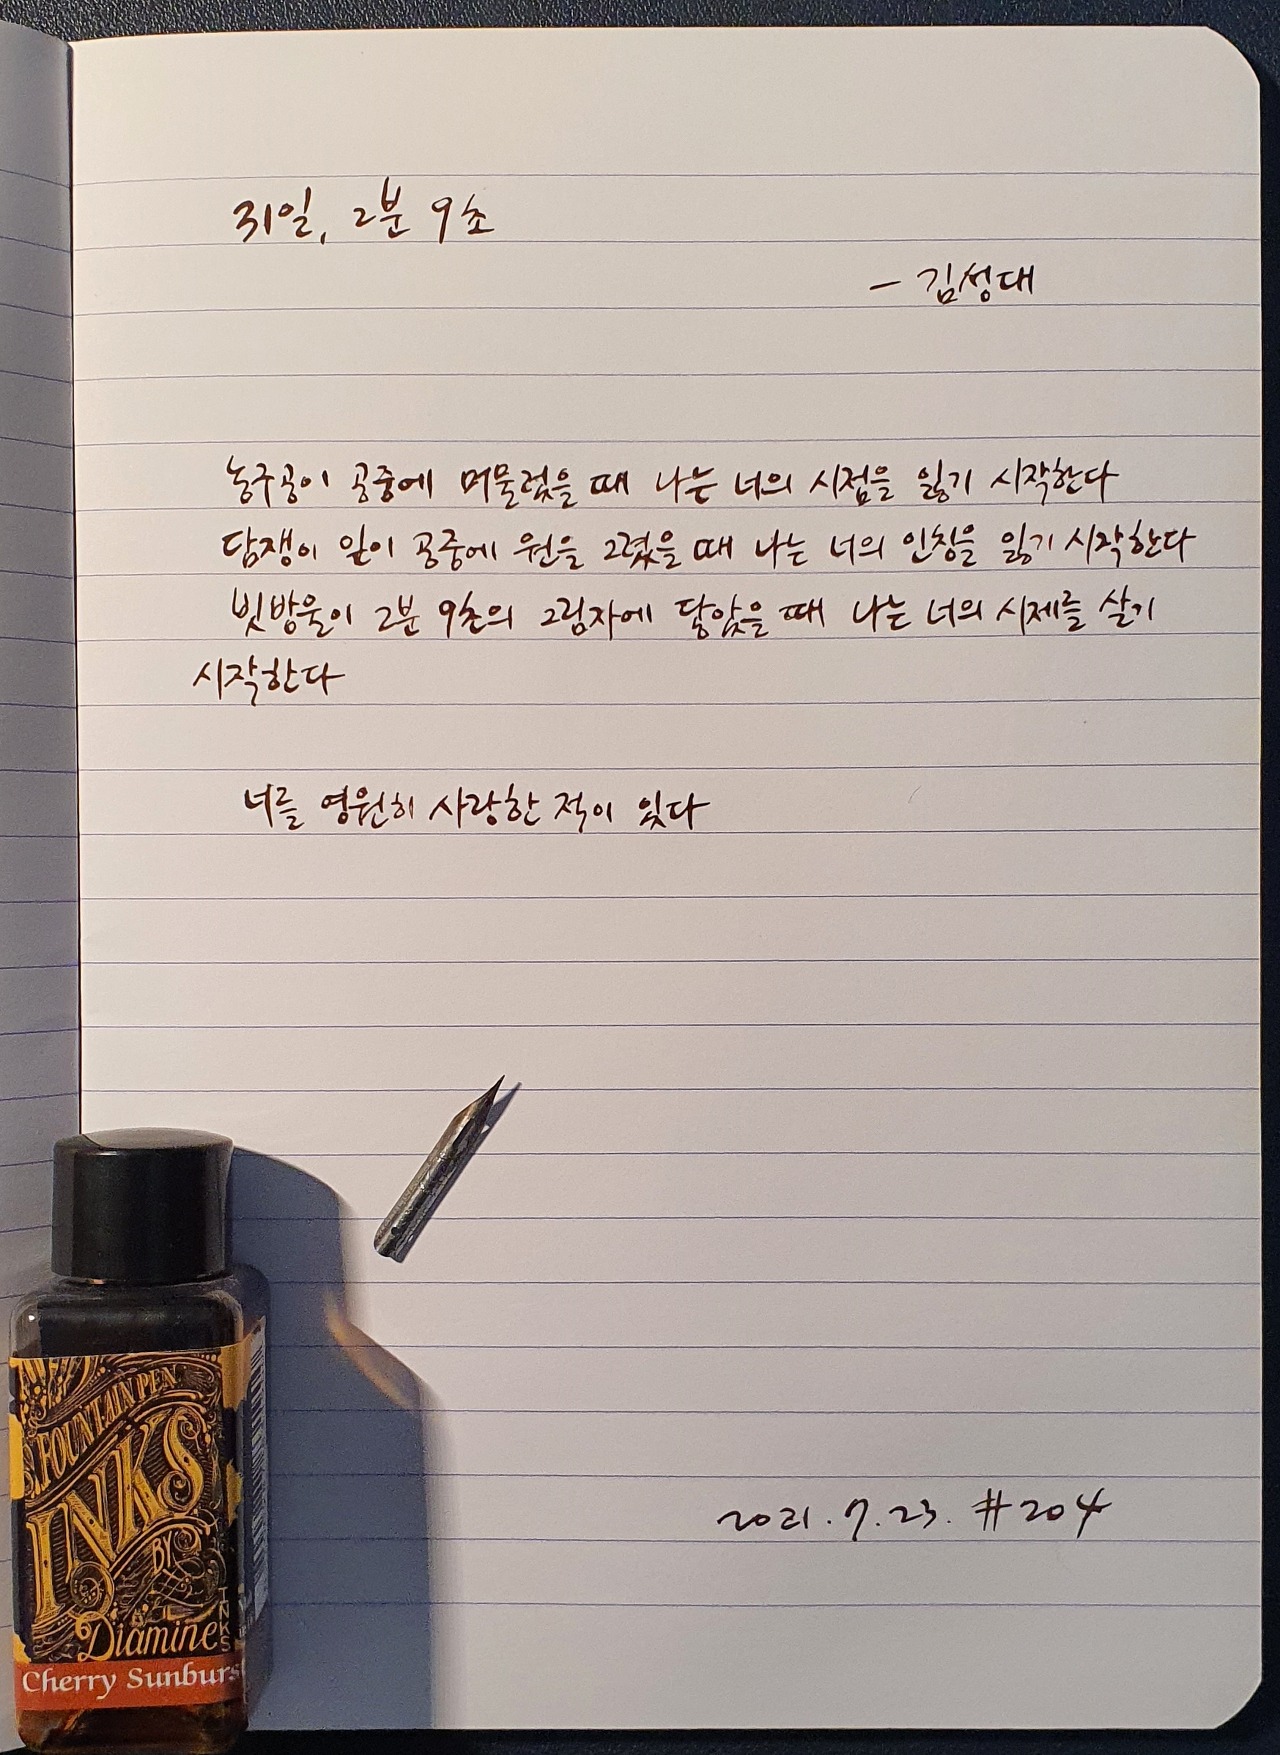 31일, 2분 9초
- 김성대
농구공이 공중에 머물렀을 때 나는 너의 시점을 잃기 시작한다
담쟁이 잎이 공중에 원을 그렸을 때 나는 너의 인칭을 잃기 시작한다
빗방울이 2분 9초의 그림자에 닿았을 때 나는 너의 시제를 살기
시작한다
너를 영원히 사랑한 적이 있다
2021.7.23. #204
FOUNTAIN PEN
INKS
BY
Diamine
INKS
Cherry Sunburst